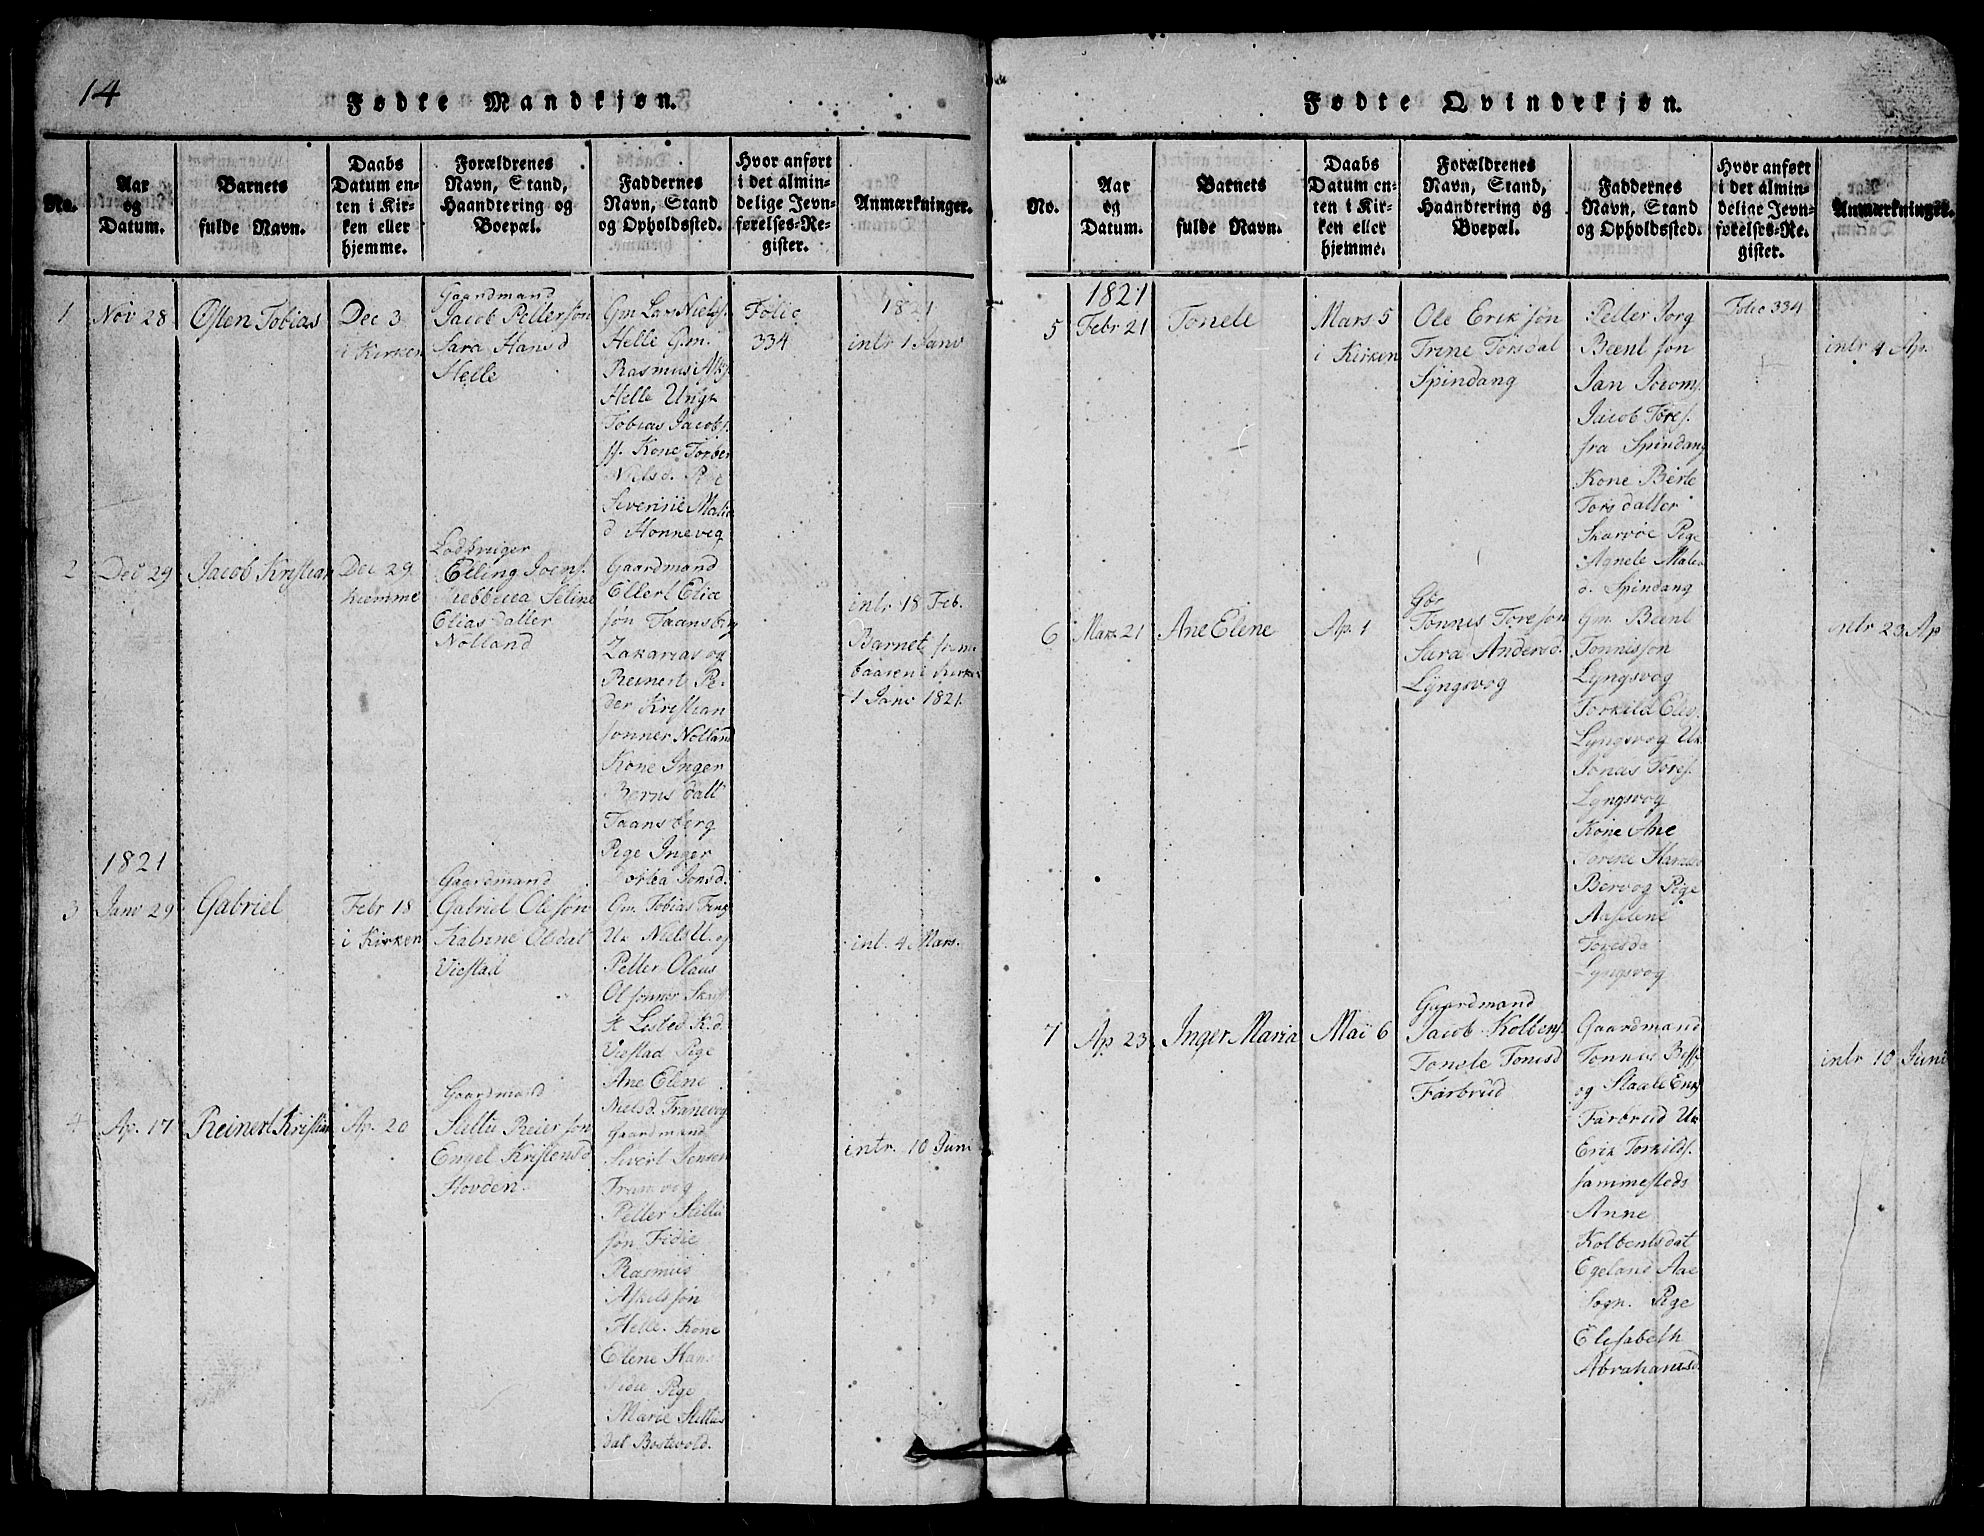 14
Fødte Mandkjøn.
No.
Aar
og
Datum.
Barnets
fulde Navn.
Daabs
Datum en-
ten i Kir-
ken eller
hjemme.
Forældrenes
Navn, Stand,
Haandtering og
Boepæl.
Faddernes
Navn, Stand
og Opholdssted.
Hvor anført
i det almin-
delige Jevn-
førelses-Re-
gister.
Anmærkninger.
1
Nov 28
Osten Tobias
Dec 3
i Kirken
Gaardmand
Jacob Pettersøn
Sara Hansd
Helle
Gm Lar Niels
Helle Gm.
Rasmus
Helle Ungk
Tobias Jacobs
Kone Torber
Nielsd. Pige
Severine Malie
d Honneveg
Folio
334
1821
intr 1 Janv
2
Dec 29
Jacob Kristian
Dec 29
hiemme
Elling Joens.
Rebbecca Seline
Elias datter
Nolland
Gaardmand
Ellert Elia
søn Taansberg
Zakarias og
Reinert Pe-
der Kristian
sønner Nolland
Kone Inger
Berns datt
Taansberg
Pige Inger
Dortea Jonsd.
intr 18 Feb.
Barnet frem
baaren i Kirken
1 Janv 1821
1821
3
Janv 29
Gabriel
Febr 18
i Kirken
Gaardmand
Gabriel Olesøn
Katrine Olsdat
Viestad
Gm. Tobias
Uk Niels U. og
Petter Olaus
Olsønner
Lisbed K.d.
Viestad Pige
Ane Elene
Nielsd. Tranevog
int. 4 Mars.
4
Ap. 17
Reinert Kristian
Ap. 20
Gaardmand
Sittu Reiersøn
Engel Kristensd
Hovden
Gaardmand
Sivert Jensen
Tranvog
Petter Sittu
søn Fidie
Rasmus
Askilssøn
Helle. Kone
Elene Hans
Fidie Pige
Marie Sittus
dat Bostvold.
intr. 10 Juni
Fødte Qvindekjøn.
No.
Aar
og
Datum.
Barnets
fulde Navn.
Daabs
Datum en-
ten i Kir-
ken eller
hjemme.
Forældrenes
Navn, Stand,
Haandtering og
Boepæl.
Faddernes
Navn, Stand
og Opholdssted.
Hvor anført
i det almin-
delige Jevn-
førelses-Re-
gister.
Anmærkninger.
1821
5
Febr 21
Tonele
Mars 5
i Kirken
Ole Eriksøn
Trine Torsdat
Spindang
Petter Jorg
Beent søn
Jan Joroms
Jacob Tores.
fra Spindang
Kone Berte
Tors datter
Skarvøe Pige
Agnete Male
d. Spindang
Folio 334
intr 4 Ap.
6
Mars 21
Ane Eline
Ap. 1
Tønnis Toresøn
Sara Andersd.
Lyngsvog
Gm. Beent
Tønnissøn
Lyngsvog
Torkild Elis.
Lyngsvog Uk.
Jonas Tores.
Lyngsvog
Kone Ane
Torine Hansd
Bervog Pige
Aaselene
Toresda
Lyngsvog
intr 23 Ap
7
Ap 23
Inger Maria
Mai 6
Gaardmand
Jacob Kolbens.
Tonele Tonisd
Farbrud
Gaardmand
Tonnis
og Staale
Farbrud Uk
Erik Torkilds.
sammesteds
Anne
Kolbentsdat
Egeland Aae
Sogn. Pige
Elisabeth
Abrahamsd.
intr 10 Juni